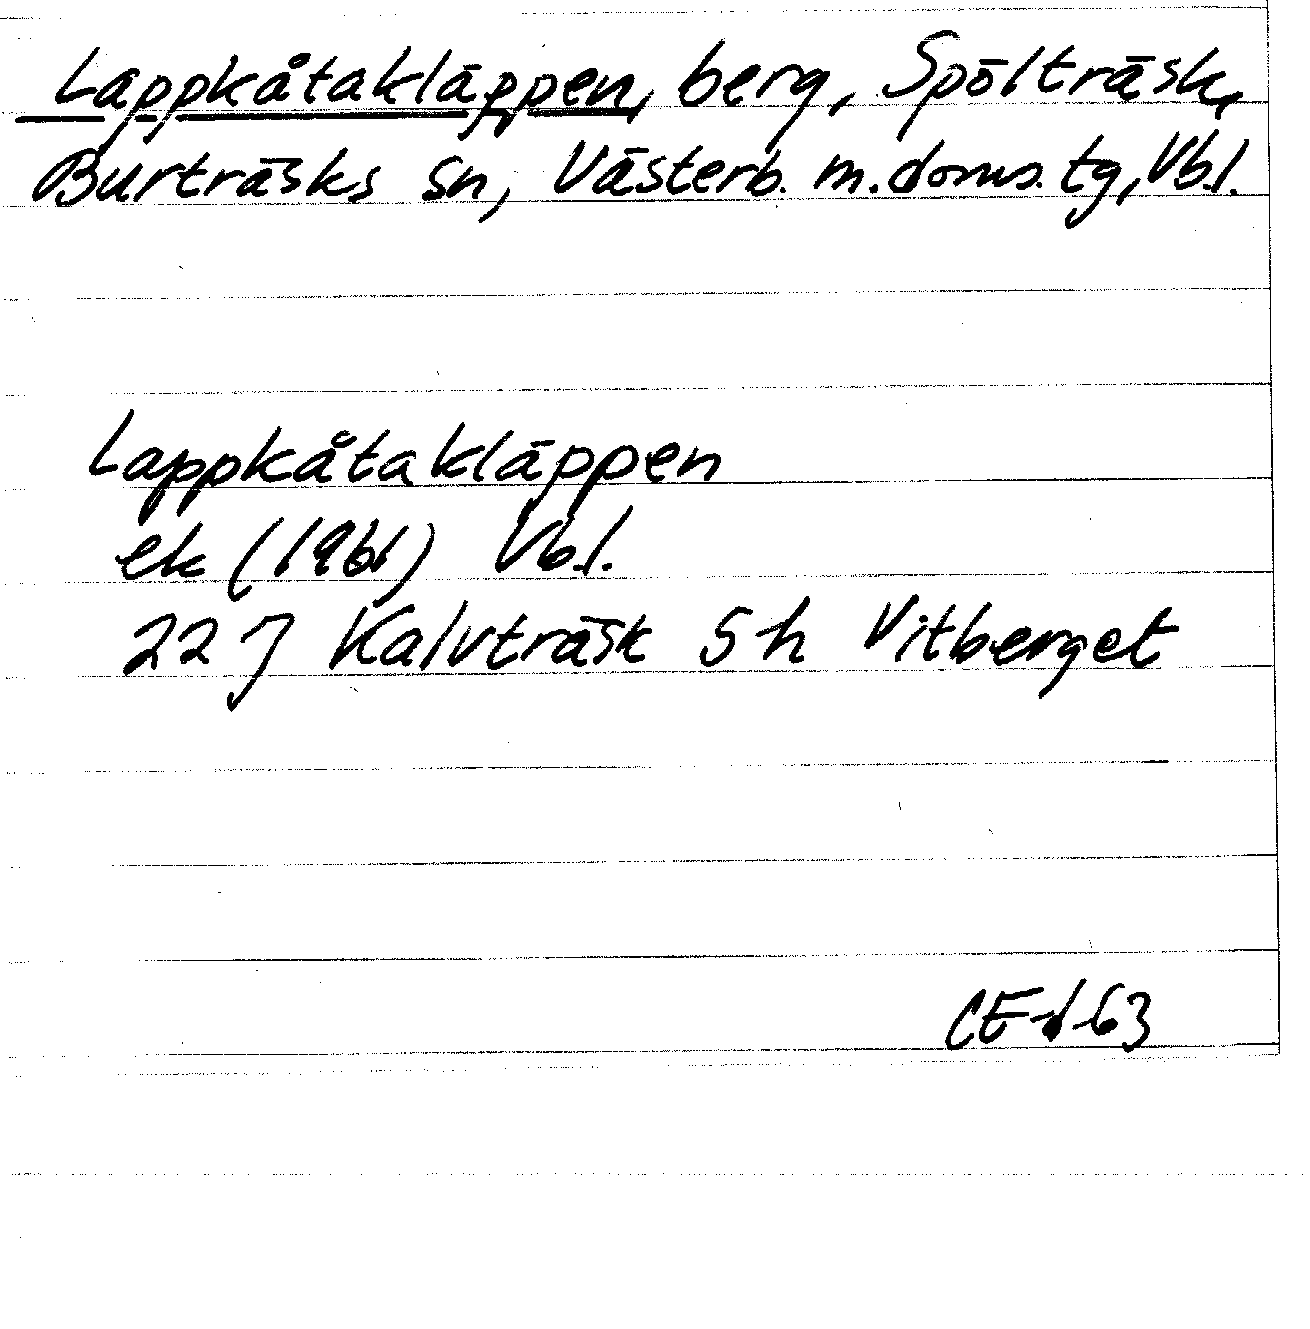 Lappkåtakläppen, berg, Spölträsk,
Burträsks sn, Västerb. m. doms. tg, Vb.l.
Lappkåtakläppen
ek (1961) Vb.l.
22 J Kalvträsk 5 h Vitberget
CE-t-63